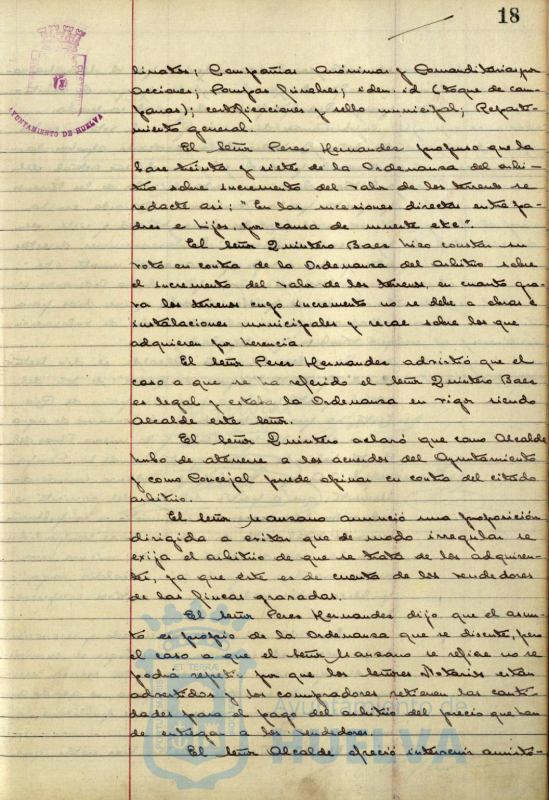 18
AYUNTAMIENTO DE HUELVA
linatos; Compañias Anónimas y Comanditarias por
acciones; Pompas fúnebres; idem. id (toque de cam-
panas); certificaciones y sello municipal; Reparti-
miento general.
El Señor Perez Hernandez propuso que la
base treinta y siete de la Ordenanza del arbi-
trio sobre incremento del valor de los terrenos se
redacte asi; "En las sucesiones directas entre pa-
dres e hijos, por causa de muerte etc".
El Señor Quintero Baez hizo constar su
voto en contra de la Ordenanza del arbitrio sobre
el incremento del valor de los terrenos, en cuanto gra-
va los terrenos cuyo incremento no se debe a obras e
instalaciones municipales y recae sobre los que
adquieren por herencia.
El Señor Perez Hernandez advirtió que el
caso a que se ha referido el Señor Quintero Baez
es legal y estaba la Ordenanza en vigor siendo
Alcalde este Señor.
El Señor Quintero aclaró que como Alcalde
hubo de atenerse a los acuerdos del Ayuntamiento
y como Concejal puede opinar en contra del citado
arbitrio.
El Señor Manzano anunció una proposición
dirigida a evitar que de modo irregular se
exija el arbitrio de que se trata de los adquiren-
tes, ya que éste es de cuenta de los vendedores
de las fincas gravadas.
El Señor Perez Hernandez dijo que el asun-
to es propio de la Ordenanza que se discute, pero
el caso a que el Señor Manzano se refiere no se
podrá repetir por que los Señores Notarios están
advertidos y los compradores retienen las canti-
dades para el pago del arbitrio del precio que han
de entregar a los vendedores.
El Señor Alcalde ofreció intervenir amisto-
ET TERRÆ
Ayuntamiento de
HUELVA